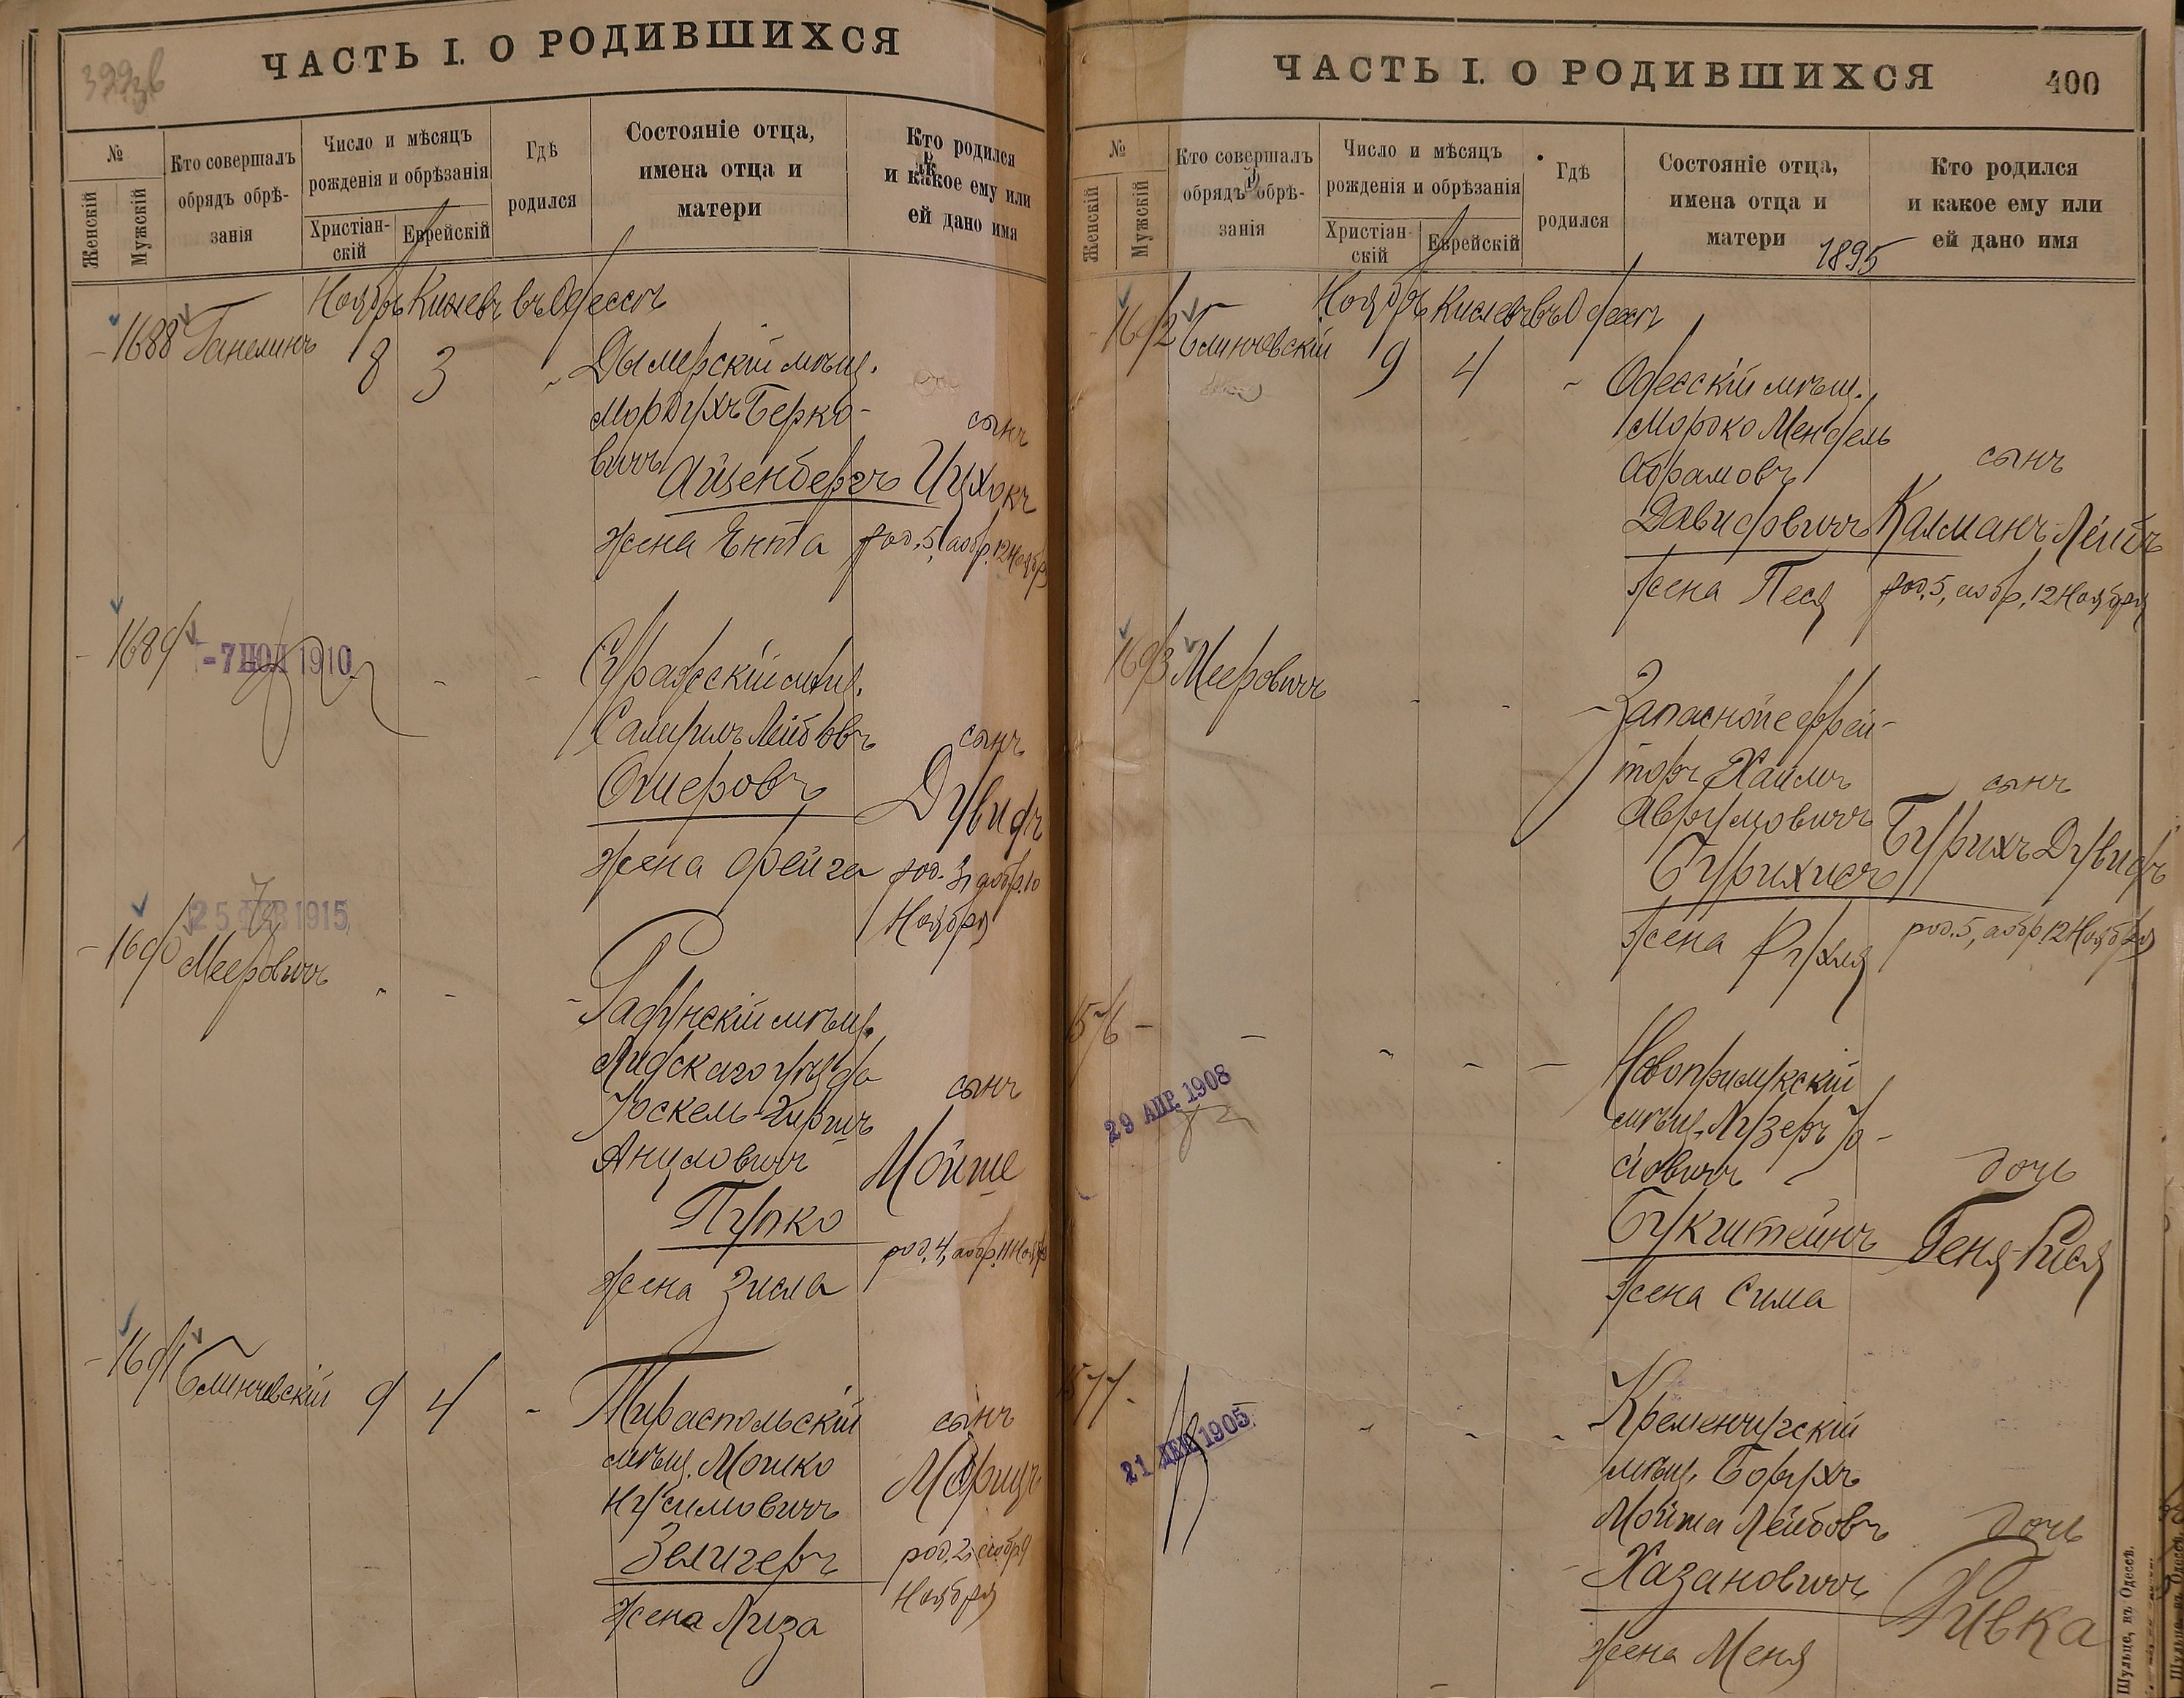 399зв
ЧАСТЬ I. О РОДИВШИХСЯ
№
Женскій
Мужскій
Кто совершалъ
обрядъ обрѣ-
занія
Число и мѣсяцъ
рожденія и обрѣзанія
Христіан-
скій
Еврейскій
Гдѣ
родился
Состояніе отца,
имена отца и
матери
Кто родился
и какое ему или
ей дано имя
Ноябрь Кислевъ въ Одессѣ
1688 Ганелинъ 8 3
Дымерскій мѣщ.
Мордухъ Берко-
вичъ
Айзенбергъ
жена Ента
сынъ
Ицхокъ
род. 5, а обр. 12 Ноября
1689
-7 ИЮЛ 1910
Суражскій мѣщ.
Самуилъ Лейбовъ
Ошеровъ
жена Фейга
сынъ
Дувидъ
род. 3, а обр. 10
Ноября
25 ФЕВ 1915
1690 Мееровичъ
Радунскій мѣщ.
Лидскаго уѣзда
Іоскель-Хиршъ
Анцловичъ
Пупко
жена Зисла
сынъ
Мойше
род. 4, а обр. 11 Ноябр
1691 Блинчевскій 9 4
Тираспольскій
мѣщ. Мошко
Нусимовичъ
Зелигеръ
жена Луза
сынъ
Морицъ
род. 2, а обр. 9
Ноября
ЧАСТЬ I. О РОДИВШИХСЯ
400
№
Женскій
Мужскій
Кто совершалъ
обрядъ обрѣ-
занія
Число и мѣсяцъ
рожденія и обрѣзанія
Христіан-
скій
Еврейскій
Гдѣ
родился
Состояніе отца,
имена отца и
матери
1895
Кто родился
и какое ему или
ей дано имя
Ноябрь Кислевъ въ Одессѣ
1692 Блинчевскій 9 4
Одесскій мѣщ.
Морко Мендель
Абрамовъ
Давидовичъ
жена Песя
сынъ
Калманъ Лейбъ
род. 5, а обр. 12 Ноября
1693 Мееровичъ
Запасной ефрей-
торъ Хаимъ
Аврумовичъ
Бурихисъ
жена Рухля
сынъ
Бурихъ Дувидъ
род. 5, а обр. 12 Ноября
1576
29 АПР. 1908
Новоприлукскій
мѣщ. Лузеръ Іо-
сіовичъ
Букштейнъ
жена Сима
дочь
Геня-Рися
1577
21 ДЕК 1905
Кременчугскій
мѣщ. Борухъ
Мойша Лейбовъ
Хазановичъ
жена Меня
дочь
Ривка
Шульце, въ Одессѣ.